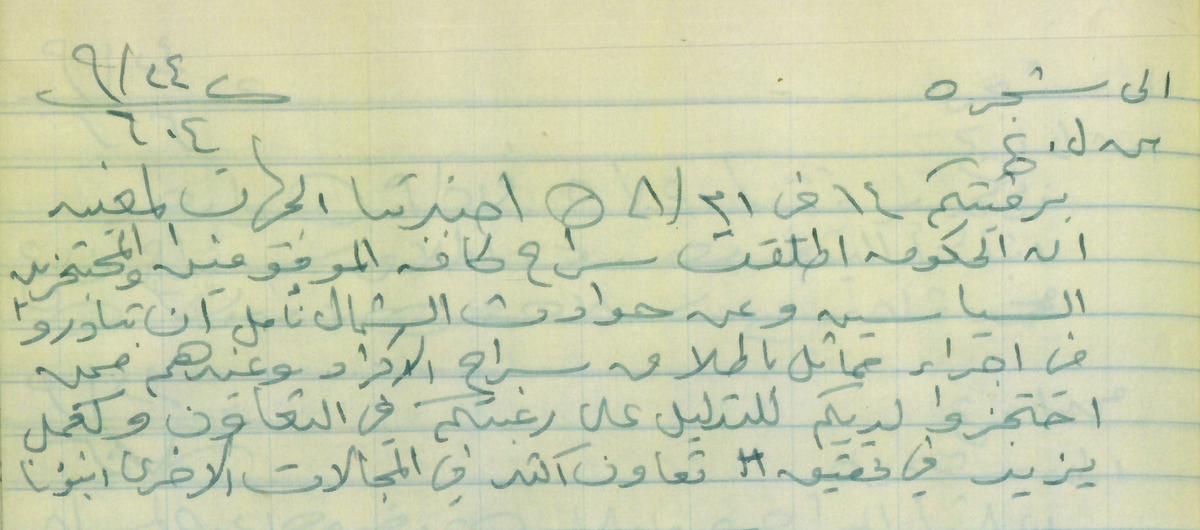 الى شجره ٥
٩/٢٤
٦٠٤
من ل.ع
برقيتكم ١٤ في ٣١/٨ اخبرتنا الجهات المعنيه
ان الحكومه اطلقت سراح كافه الموقوفين والمحتجزين
السياسيين وعن حوادث الشمال نأمل ان تبادروا
في اجراء مماثل باطلاق سراح الافراد وغيرهم ممن
احتجزوا لديكم للتدليل على رغبتكم في التعاون وكعمل
يزيد في تحقيق تعاون اكثر في المجالات الاخرى انبئونا